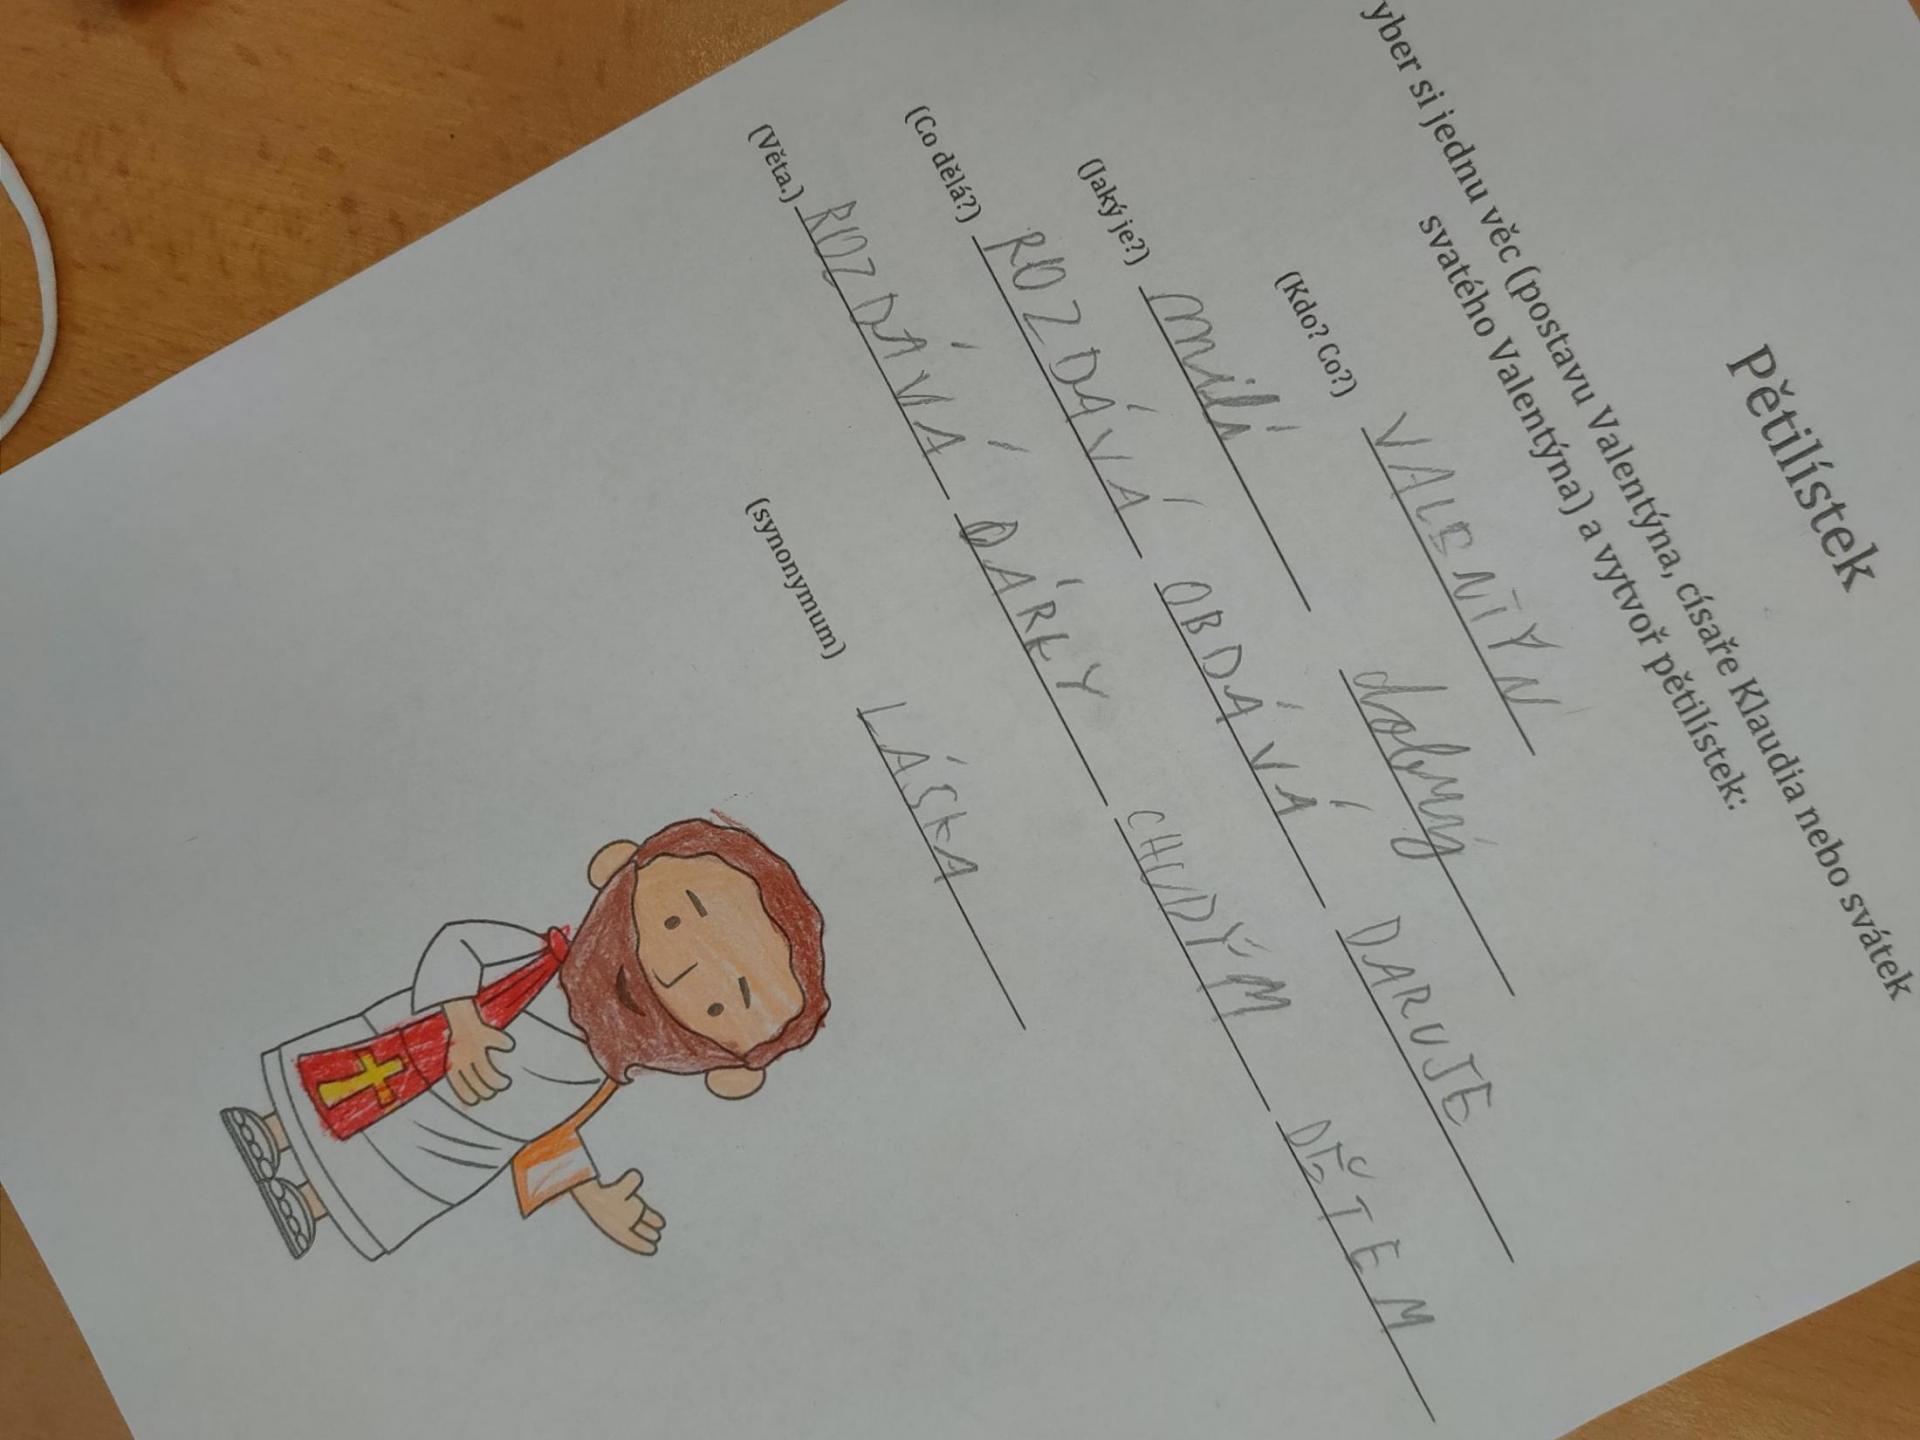 Pětilístek
yber si jednu věc (postavu Valentýna, císaře Klaudia nebo svátek
svatého Valentýna) a vytvoř pětilístek:
(Kdo? Co?) VALENTÝN
(Jaký je?) milí dobrý
(Co dělá?) ROZDÁVÁ OBDÁVÁ DARUJE
(Věta.) ROZDÁVÁ DÁRKY CHUDÝM DĚTEM
(synonymum) LÁSKA